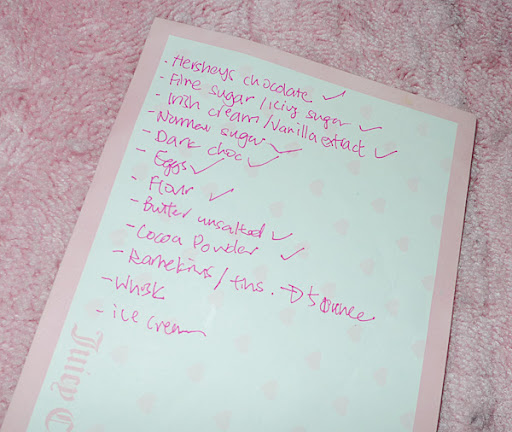 - Hersheys chocolate ✓
- Fine sugar / icing sugar ✓
- Irish cream / Vanilla extract ✓
- Normal sugar ✓
- Dark choc ✓
- Eggs ✓
- Flour ✓
- Butter unsalted ✓
- Cocoa Powder ✓
- Ramekins / tins. → 5 ounce
- Whisk
- ice cream
Juicy C